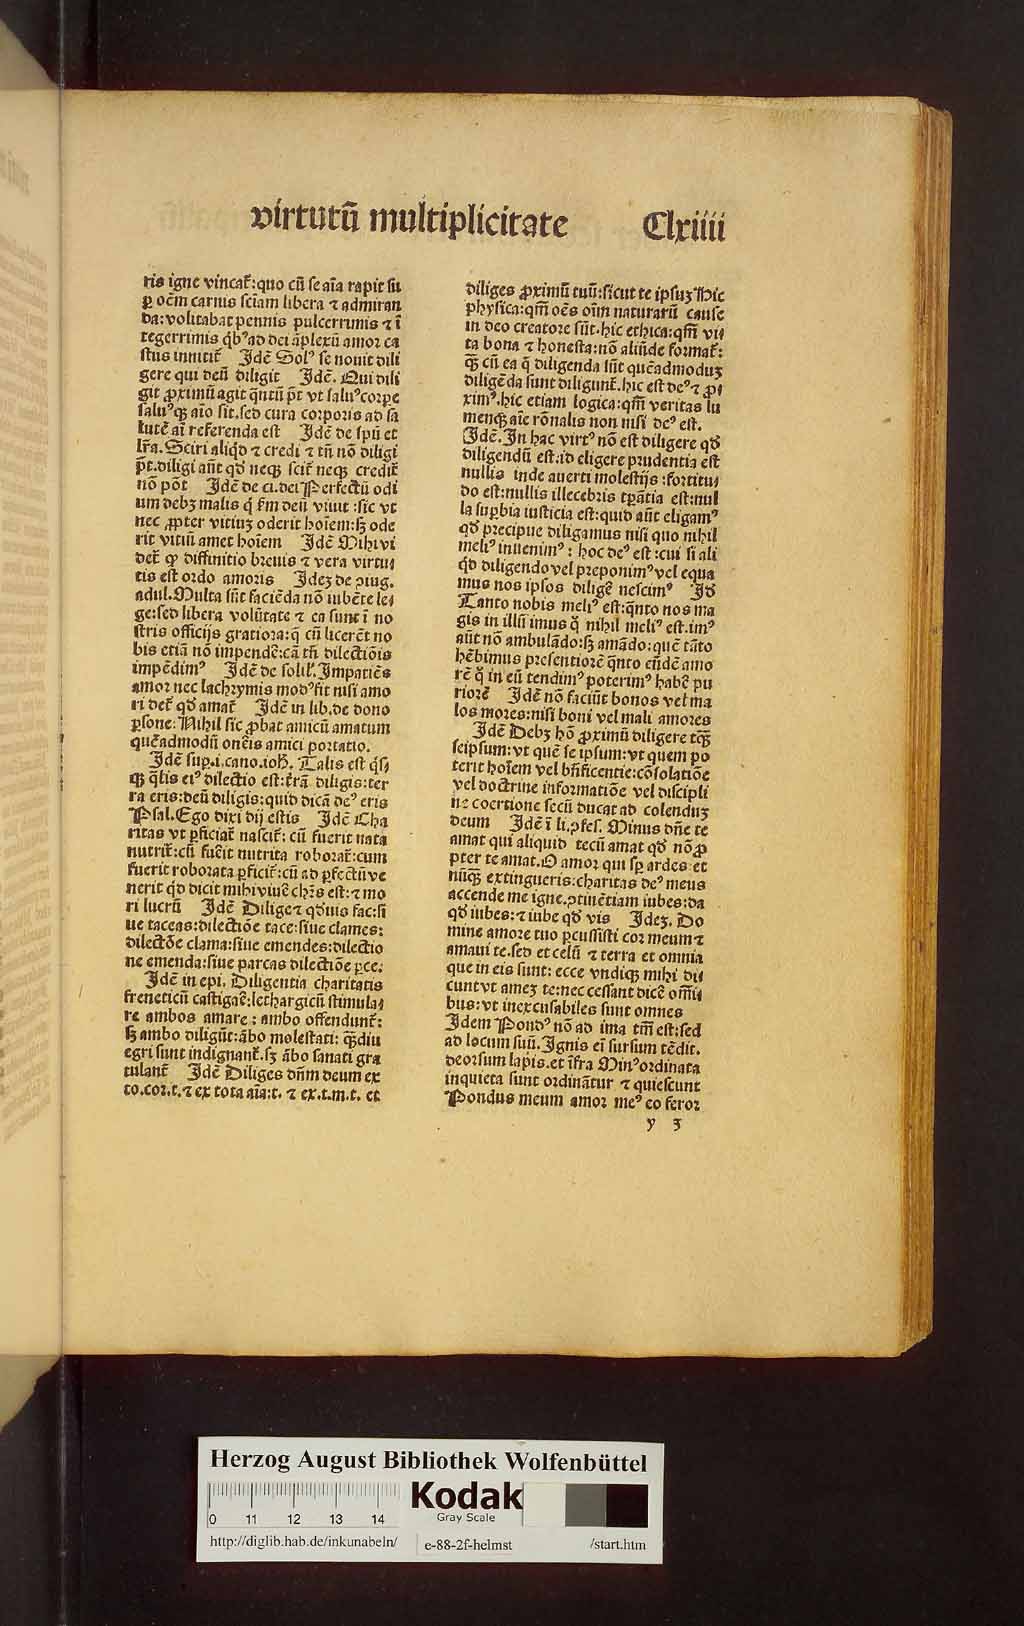 virtutū multiplicitate Clxiiii
ris igne vincat᷑:quo cū se aīa rapit su
ꝑ oēm carius sciam libera ⁊ admiran
da:volitabat pennis pulcerrimis ⁊ ī
tegerrimis qͥbꝰ ad dei āplexū amor ca
stus innitit᷑ Idē Solꝰ se nouit dili
gere qui deū diligit Idē. Qui dili
git ꝓximū agit qͣntū pt̄ vt saluꝰ corꝑe
saluꝰqꝫ aīo sit.sed cura corporis ad sa
lutē aī referenda est Idē de spū et
lr̄a. Sciri aliqͥd ⁊ credi ⁊ tn̄ nō diligi
pt̄.diligi aūt qd̄ neqꝫ scit᷑ neqꝫ credit᷑
nō pōt Idē de ci.dei Perfectū odi
um debꝫ malis q̄ ẜm deū viuit :sic vt
nec ꝓpter vitiuꝫ oderit hoīem:sꝫ ode
rit vitiū amet hoīem Idē Mihi vi
det᷑ ꝙ diffinitio breuis ⁊ vera virtu⸗
tis est ordo amoris Ideꝫ de ꝯiug.
adul.Multa sūt faciēda nō iubēte le⸗
ge:sed libera volūtate ⁊ ea sunt ī no
stris officijs gratiora:q̄ cū licerēt no
bis etiā nō impendē:cā tn̄ dilectiōis
impēdimꝰ Idē de solil. Impatiēs
amor nec lachrymis modꝰ fit nisi amo
ri det᷑ qd̄ amat᷑ Idē in lib.de dono
ꝑsone: Nihil sic ꝓbat amicū amatum
quēadmodū onēis amici portatio.
Idē suꝑ.i.cano.ioh̄. Talis est qͥs⸗
qꝫ qͣlis eiꝰ dilectio est:tr̄ā diligis:ter
ra eris:deū diligis:quid dicā deꝰ eris
Psal.Ego dixi dij estis Idē Cha
ritas vt ꝑficiat᷑ nascit᷑: cū fuerit nata
nutrit᷑:cū fuēit nutrita roborat᷑:cum
fuerit roborata ꝑficit᷑:cū ad ꝑfectū ve
nerit qͥd dicit mihi viuē chr̄s est:⁊ mo
ri lucrū Idē Dilige⁊ qd̄uis fac:si
ue taceas:dilectiōe tace:siue clames:
dilectōe clama:siue emendes:dilectio
ne emenda:siue parcas dilectiōe ꝑce:
Idē in epi. Diligentia charitatis
freneticū castigaē:lethargicū stimula⸗
re ambos amare: ambo offendunt᷑:
sꝫ ambo diligūt:ābo molestati: qͣꝫdiu
egri sunt indignant᷑.sꝫ ābo sanati gra
tulant᷑ Idē Diliges dn̄m deum ex
to.cor.t.⁊ ex tota aīa:t. ⁊ ex.t.m.t. et
diliges ꝓximū tuū:sicut te ipsuꝫ Hic
physica:qm̄ oēs oīm naturarū cause
in deo creatore sūt.hic ethica:qm̄ vi⸗
ta bona ⁊ honesta:nō aliūde format᷑:
qͣꝫ cū ea q̄ diligenda sūt quēadmoduꝫ
diligēda sunt diligunt᷑.hic est deꝰ ⁊ ꝓ⸗
ximꝰ.hic etiam logica:qm̄ veritas lu
menqꝫ aīe rōnalis non nisi deꝰ est.
Idē. In hac virtꝰ nō est diligere qd̄
diligendū est.id eligere prudentia est
nullis inde auerti molestijs :fortitu⸗
do est:nullis illecebris tꝑantia est:nul
la suꝑbia iusticia est:quid aūt eligamꝰ
qd̄ precipue diligamus nisi quo nihil
meliꝰ inuenimꝰ: hoc deꝰ est :cui si ali
qͥd diligendo vel preponimꝰ vel equa
mus nos ipsos diligē nescimꝰ Id̄
Tanto nobis meliꝰ est:qͣnto nos ma
gis in illū imus qͦ nihil meliꝰ est.imꝰ
aūt nō ambulādo:sꝫ amādo:quē tāto
hēbimus presentiorē qͣnto eūdē amo
rē qͦ in eū tendimꝰ poterimꝰ habē pu
riorē Idē nō faciūt bonos vel ma
los mores:nisi boni vel mali amores
Idē Debꝫ hō ꝓximū diligere tqͣꝫ
seipsum:vt quē se ipsum:vt quem po
terit hoīem vel bn̄ficentie:cōsolatiōe
vel doctrine informatiōe vel discipli
ne coertione secū ducat ad colenduꝫ
deum Idē ī li.ꝯfes. Minus dn̄e te
amat qui aliquid tecū amat qd̄ nō ꝓ
pter te amat.O amor qui sꝑ ardes et
nūqͣꝫ extingueris:charitas deꝰ meus
accende me igne.ꝯtinētiam iubes:da
qd̄ iubes:⁊ iube qd̄ vis Ideꝫ. Do
mine amore tuo ꝑcussisti cor meum ⁊
amaui te.sed et celū ⁊ terra et omnia
que in eis sunt: ecce vndiqꝫ mihi di⸗
cunt vt ameꝫ te:nec cessant dicē omī⸗
bus:vt inexcusabiles sunt omnes
Idem Pondꝰ nō ad ima tm̄ est:sed
ad locum suū. Ignis eī sursum tēdit.
deorsum lapis.et īfra Minꝰ ordinata
inquieta sunt ordināntur ⁊ quiescunt
Pondus meum amor meꝰ eo feror
y 3
Herzog August Bibliothek Wolfenbüttel
0 11 12 13 14
Kodak
Gray Scale
http://diglib.hab.de/inkunabeln/ e-88-2f-helmst /start.htm